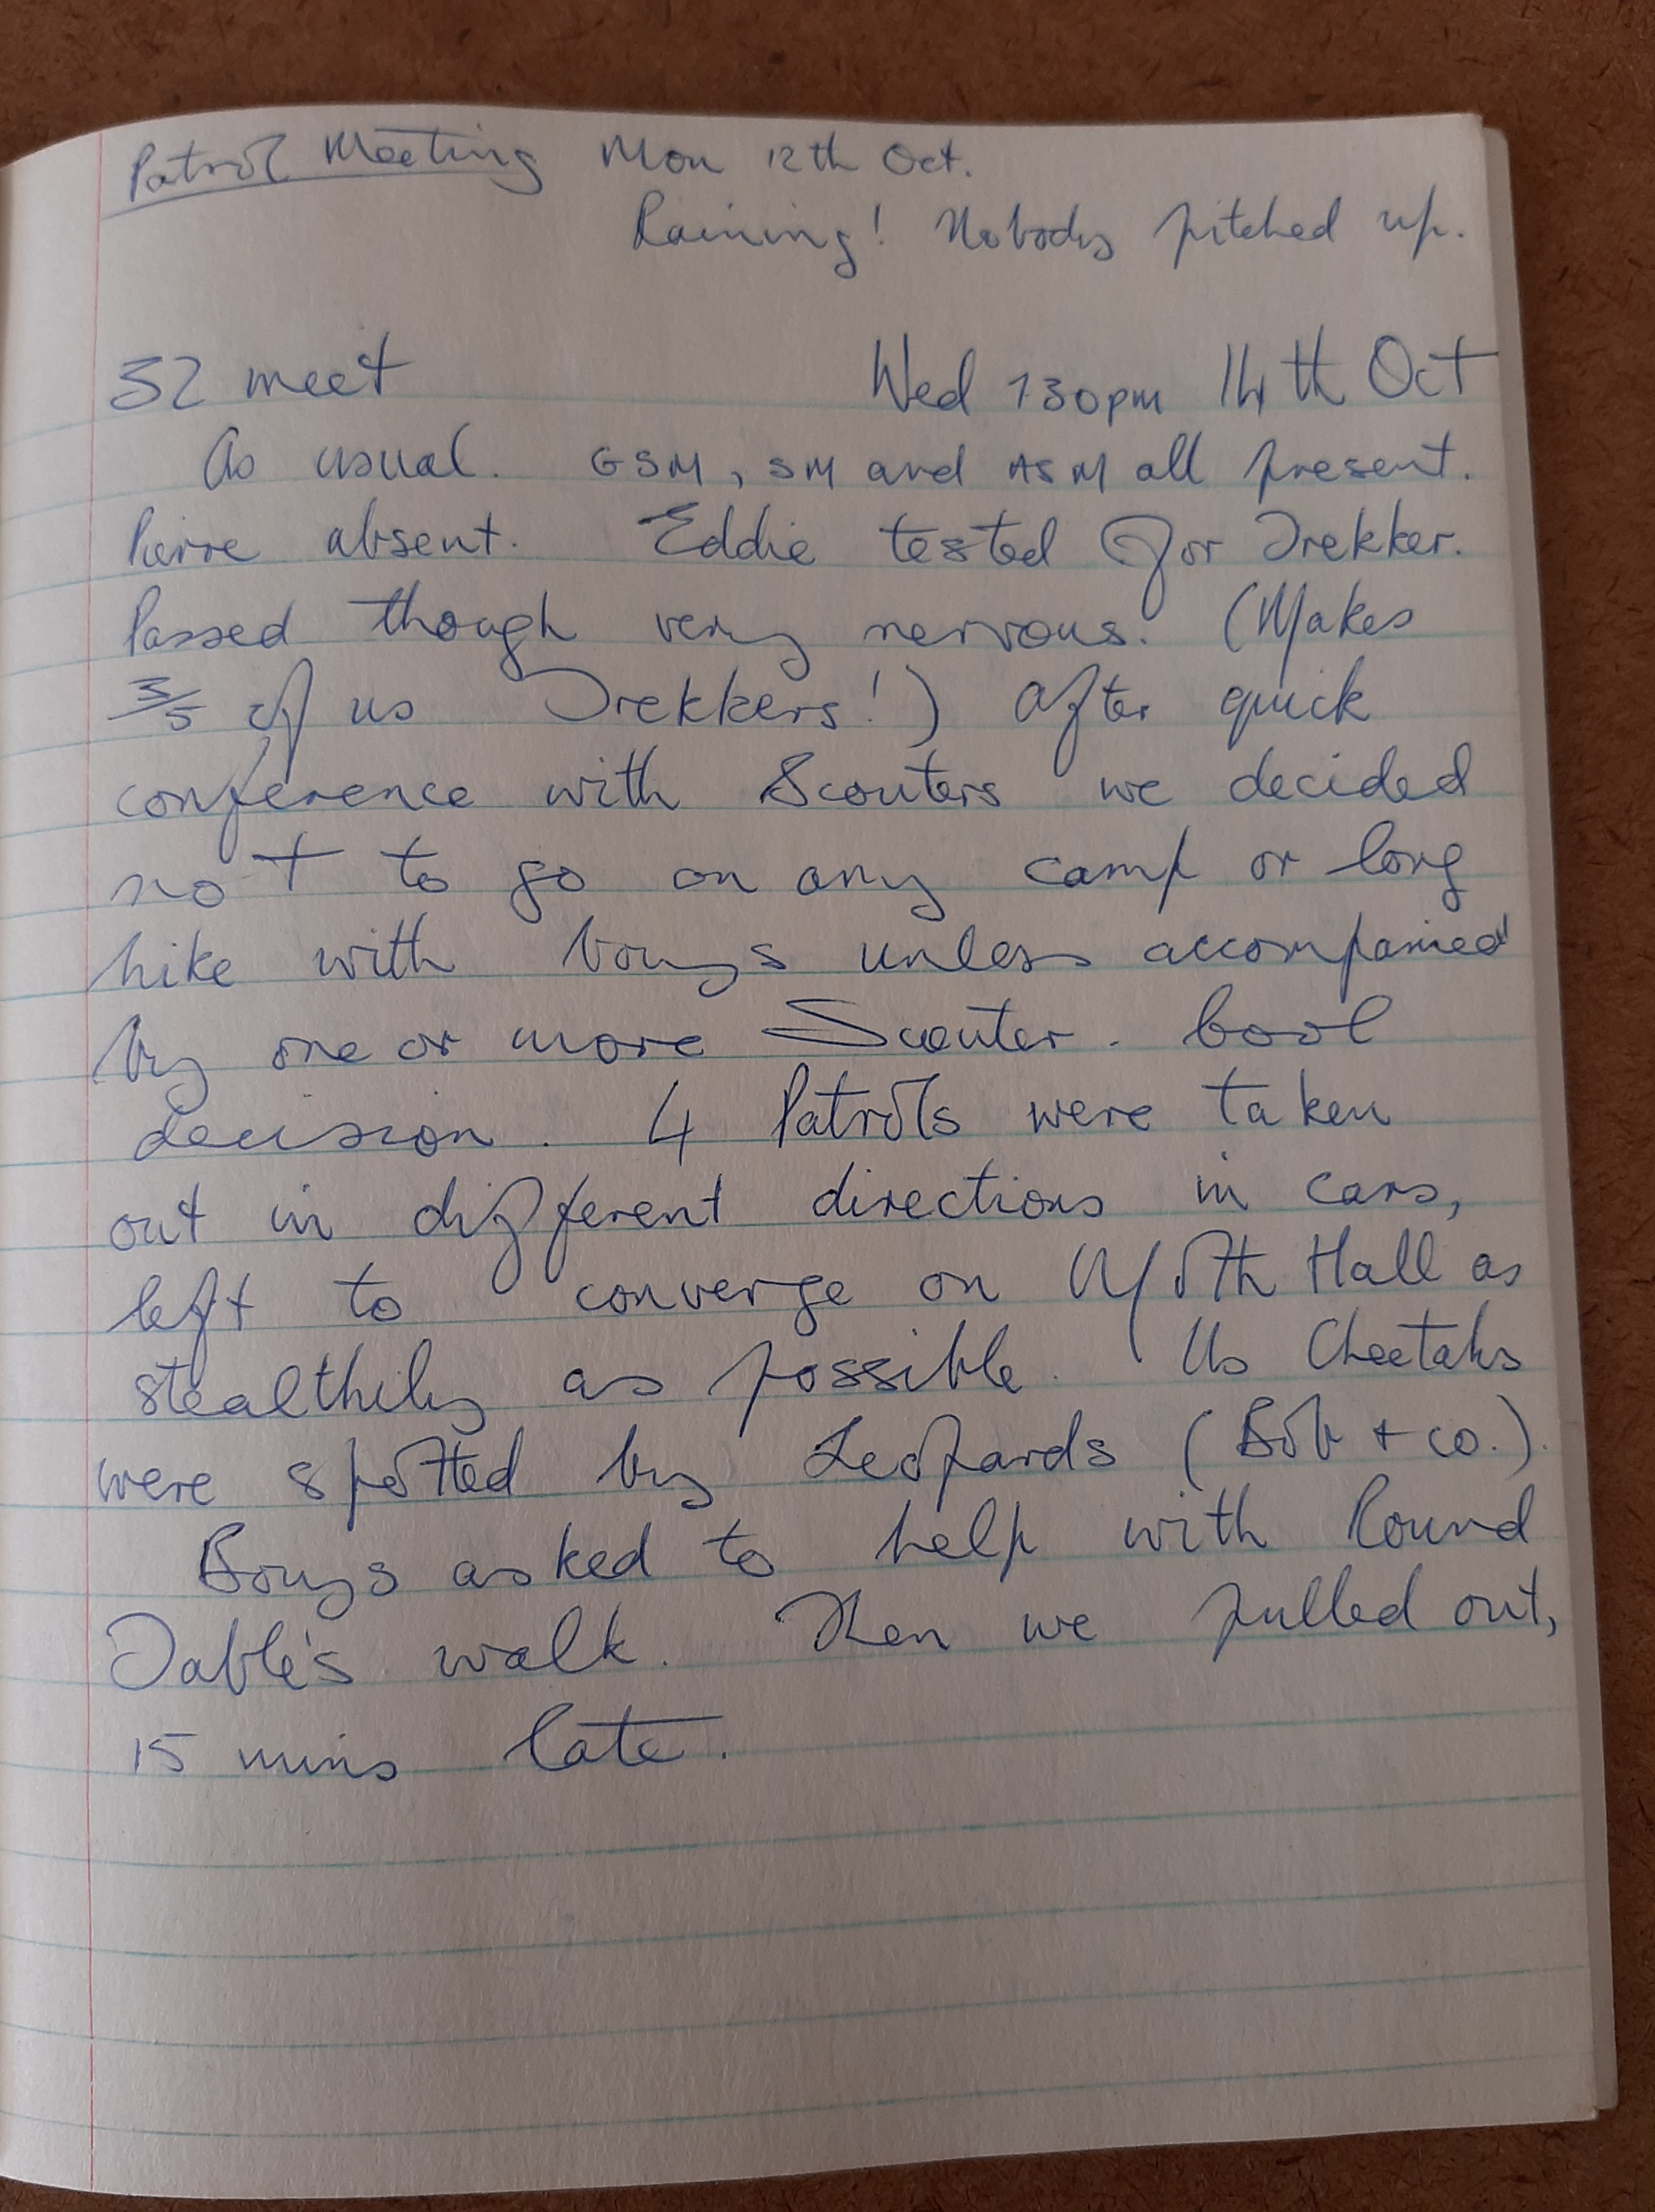 Patrol Meeting Mon 12th Oct.
Raining! Nobody pitched up.
52 meet Wed 730pm 14th Oct
As usual. GSM, SM and ASM all present.
Pierre absent. Eddie tested for Trekker.
Passed though very nervous. (Makes
3/5 of us Trekkers!) After quick
conference with Scouters we decided
not to go on any camp or long
hike with bongs unless accompanied
by one or more Scouter. Cool
decision. 4 Patrols were taken
out in different directions in cars,
left to converge on Moth Hall as
stealthily as possible. Us Cheetahs
were spotted by Leopards (Bob + co.).
Bongs asked to help with Round
Table's walk. Then we pulled out,
15 mins late.